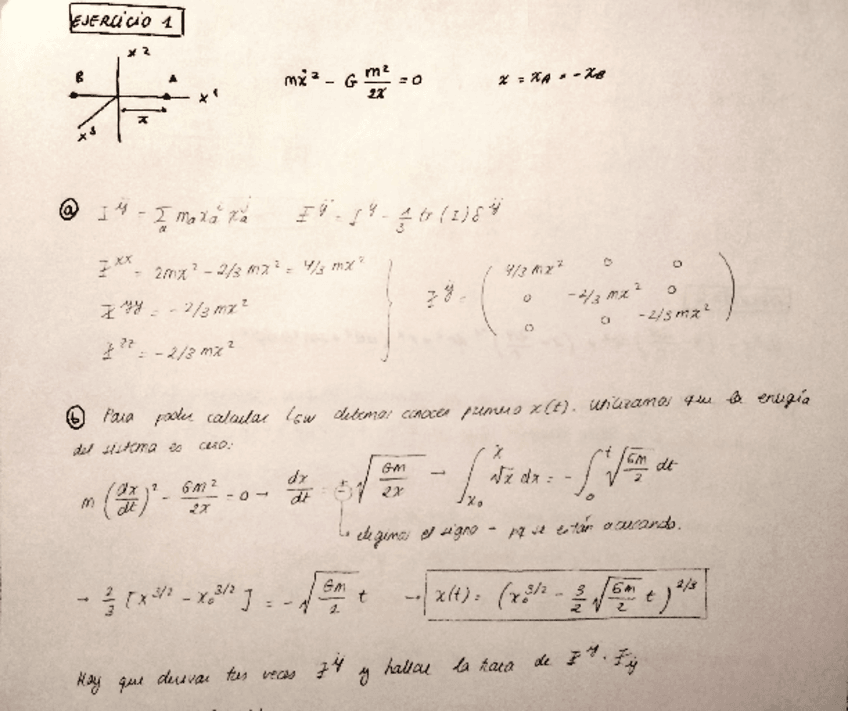 EJERCICIO 1
x²
B A
x¹
x
x³
mẋ² - G m²/2x = 0    x = x_A = -x_B
ⓐ I^ij = Σ_a m_a x_a^i x_a^j    Ɪ^ij = I^ij - 1/3 tr(I) δ^ij
Ɪ^xx = 2mx² - 2/3 mx² = 4/3 mx²
Ɪ^yy = -2/3 mx²
Ɪ^zz = -2/3 mx²
Ɪ^ij = ( 4/3 mx² 0 0
0 -2/3 mx² 0
0 0 -2/3 mx² )
ⓑ Para poder calcular L_GW debemos conocer primero x(t). Utilizamos que la energía
del sistema es cero:
m (dx/dt)² - Gm²/2x = 0 → dx/dt = ± √(Gm/2x) → ∫_{x₀}^{x} √x dx = - ∫_0^t √(Gm/2) dt
elegimos el signo - pq se están acercando.
→ 2/3 [x^{3/2} - x₀^{3/2}] = - √(Gm/2) t → x(t) = (x₀^{3/2} - 3/2 √(Gm/2) t)^{2/3}
Hay que derivar tres veces Ɪ^ij y hallar la traza de Ɪ^ij · Ɪ_ij